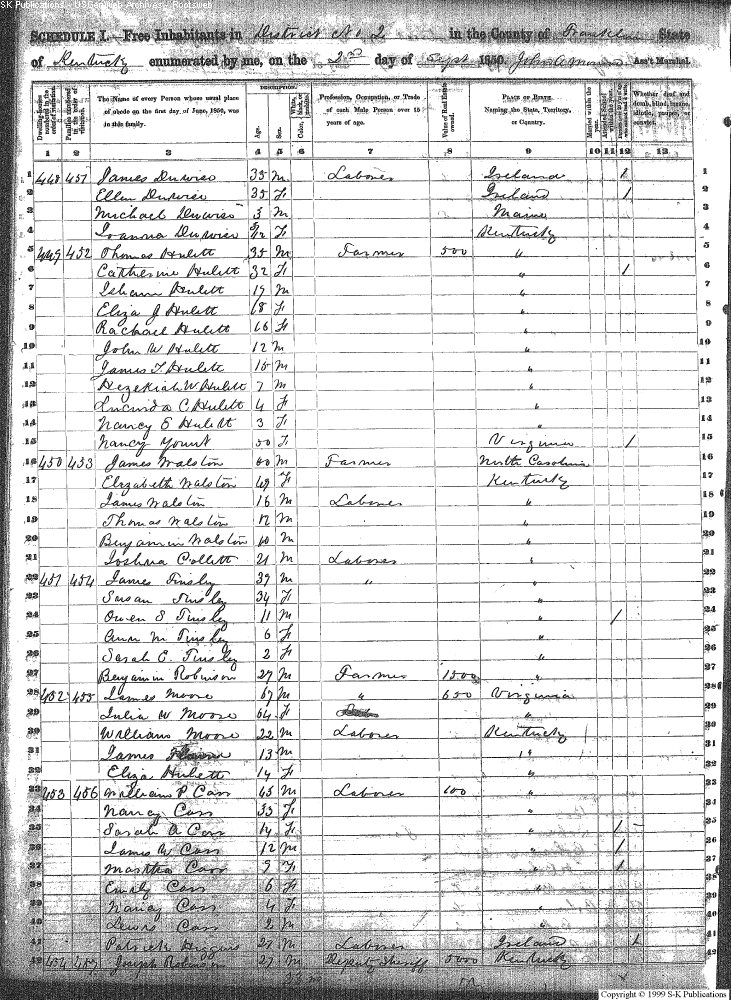 S-K Publications - USGenWeb Archives - Rootsweb
SCHEDULE I.—Free Inhabitants in District No. 2 in the County of Franklin State
of Kentucky enumerated by me, on the 2nd day of Sept 1850. John A. Ass't Marshal.
Dwelling-houses numbered in the order of visitation.
Families numbered in the order of visitation.
The Name of every Person whose usual place of abode on the first day of June, 1850, was in this family.
DESCRIPTION.
Age.
Sex.
White, black, or mulatto.
Color,
Profession, Occupation, or Trade of each Male Person over 15 years of age.
Value of Real Estate owned.
PLACE OF BIRTH.
Naming the State, Territory, or Country.
Married within the year.
Whether deaf and dumb, blind, insane, idiotic, pauper, or convict.
1 2 3 4 5 6 7 8 9 10 11 12 13
1 448 451 James 35 M Laborer Ireland / 1
2 Ellen 35 F Ireland / 2
3 Michael 3 M Maine 3
4 Joanna /12 F Kentucky 4
5 449 452 Thomas Hulett 35 M Farmer 500 " 5
6 Catherine Hulett 32 F " / 6
7 Isham Hulett 19 M " 7
8 Eliza J Hulett 18 F " 8
9 Rachael Hulett 16 F " 9
10 John W Hulett 12 M " 10
11 James T. Hulett 15 M " 11
12 Hezekiah W Hulett 7 M " 12
13 Lucinda C. Hulett 4 F " 13
14 Nancy E Hulett 3 F " 14
15 Nancy Yount 50 F Virginia / 15
16 450 453 James Walston 60 M Farmer North Carolina 16
17 Elizabeth Walston 48 F Kentucky 17
18 James Walston 16 M Laborer " 18
19 Thomas Walston 12 M " 19
20 Benjamin Walston 10 M " 20
21 Joshua Collett 21 M Laborer " 21
22 451 454 James Tinsley 39 M " " 22
23 Susan Tinsley 34 F " 23
24 Owen S Tinsley 11 M " / 24
25 Ann M Tinsley 6 F " 25
26 Sarah E. Tinsley 2 F " 26
27 Benjamin Robinson 27 M Farmer 1500 " 27
28 452 455 James Moore 67 M " 650 Virginia 28
29 Julia W Moore 64 F " 29
30 William Moore 22 M Laborer Kentucky 30
31 James 13 M " 31
32 Eliza Hulett 14 F " 32
33 453 456 William P. Cass 45 M Laborer 100 " 33
34 Nancy Cass 33 F " 34
35 Sarah A Cass 14 F " / 35
36 James W Cass 12 M " / 36
37 Martha Cass 9 F " / 37
38 Emily Cass 6 F " 38
39 Nancy Cass 4 F " 39
40 Lewis Cass 2 M " 40
41 Patrick Higgins 27 M Laborer Ireland 41
42 454 457 Joseph Robinson 27 M Deputy Sheriff 5000 Kentucky 42
Copyright © 1999 S-K Publications